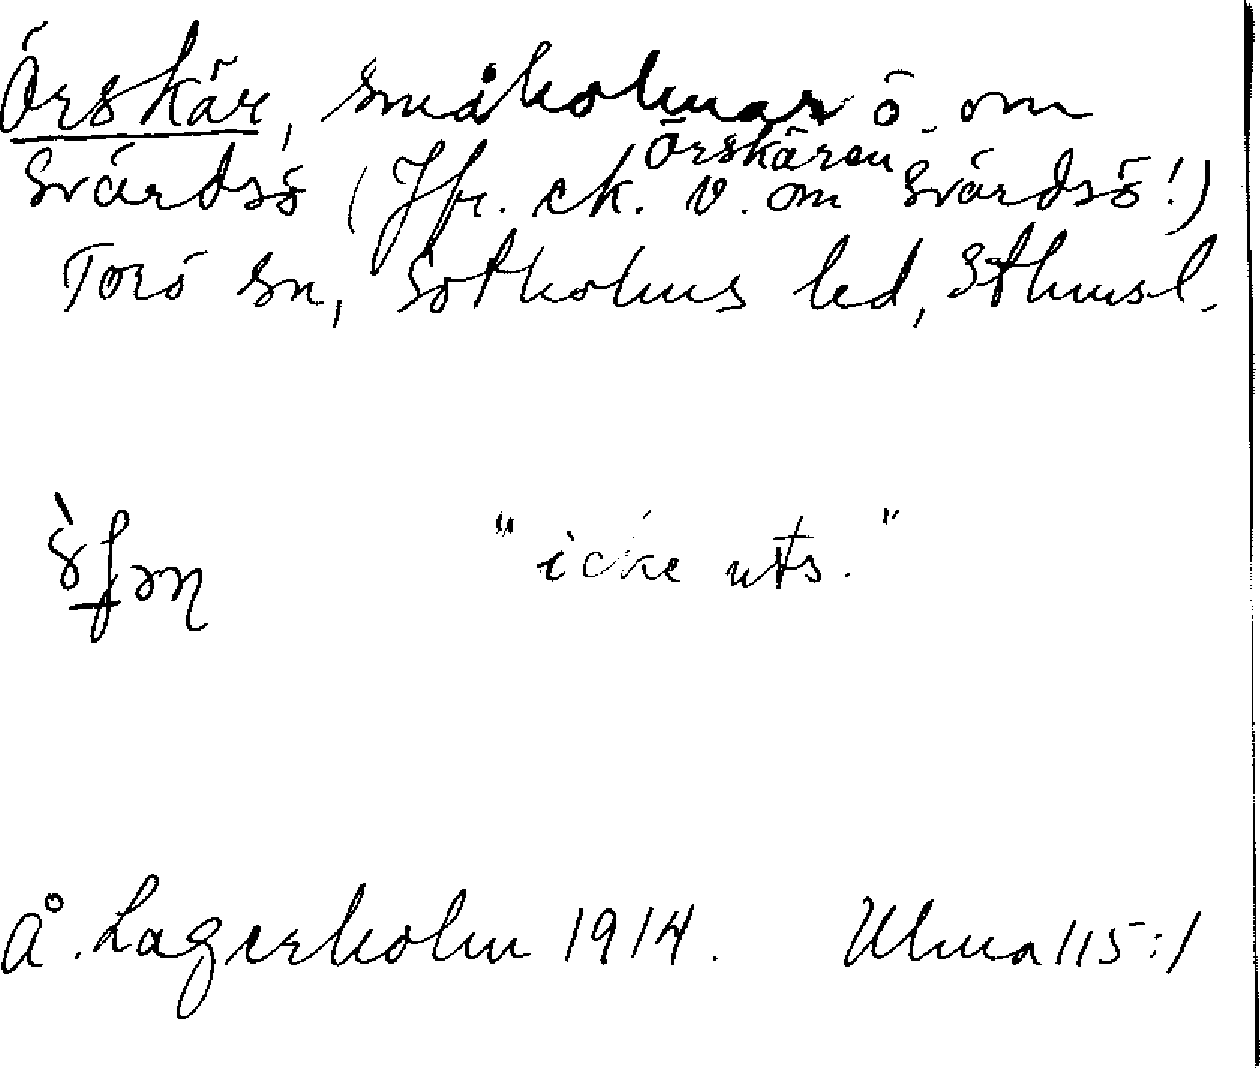 Örskär, småholmar ö. om
Svärdsö (Jfr. ek. Örskären v. om Svärdsö!)
Torö sn, Sotholms hd, Sthmsl.
"icke uts."
Å. Lagerholm 1914. Ulma 115:1